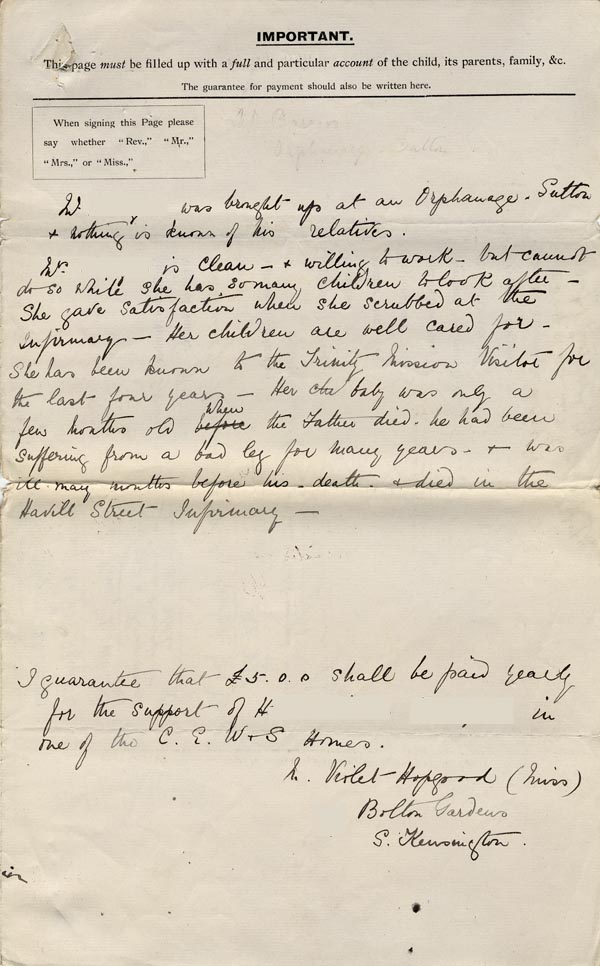 IMPORTANT.
This page must be filled up with a full and particular account of the child, its parents, family, &c.
The guarantee for payment should also be written here.
When signing this Page please
say whether "Rev.," "Mr.,"
"Mrs.," or "Miss.,"
Mr was brought up at an Orphanage. Sutton
& nothing is known of his relatives.
Mrs is clean - & willing to work - but cannot
do so while she has so many children to look after -
She gave satisfaction when she scrubbed at the
Infirmary - Her children are well cared for -
She has been known to the Trinity Mission Visitor for
the last four years - Her baby was only a
few months old before when the Father died. he had been
suffering from a bad leg for many years - & was
ill may months before his death. & died in the
Havill Street Infirmary -
I guarantee that £5.0.0 shall be paid yearly
for the support of H in
one of the C. E. W & S Homes.
Violet Hopgood (Miss)
Bolton Gardens
S. Kensington.